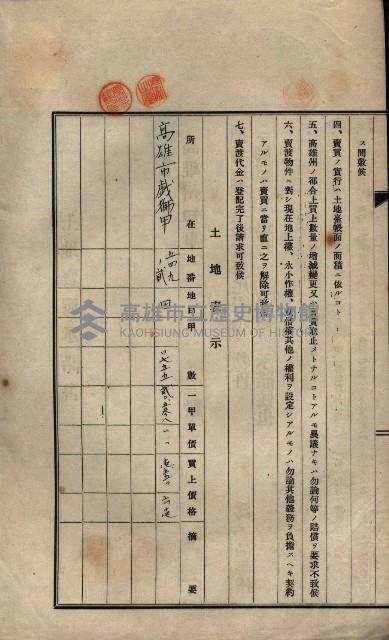 ス間敷候
四、賣買ノ實行ハ土地臺帳面ノ面積ニ依ルコト
五、高雄州ノ都合上買上數量ノ増減變更又ハ買取止メトナルコトアルモ異議ナキハ勿論何等ノ賠償ヲ要求不致候
六、賣渡物件ニ對シ現在地上權、永小作權、借權其他ノ權利ヲ設定シアルモノハ勿論其他義務ヲ負擔スヘキ契約
アルモノハ賣買ニ當リ直ニ之ヲ解除可致
七、賣渡代金ハ登記完了後請求可致候
土地表示
所在 地番 地目 甲數 一甲單價 買上價格 摘要
高雄市戲獅甲
高雄市立歷史博物館
KAOHSIUNG MUSEUM OF HISTORY